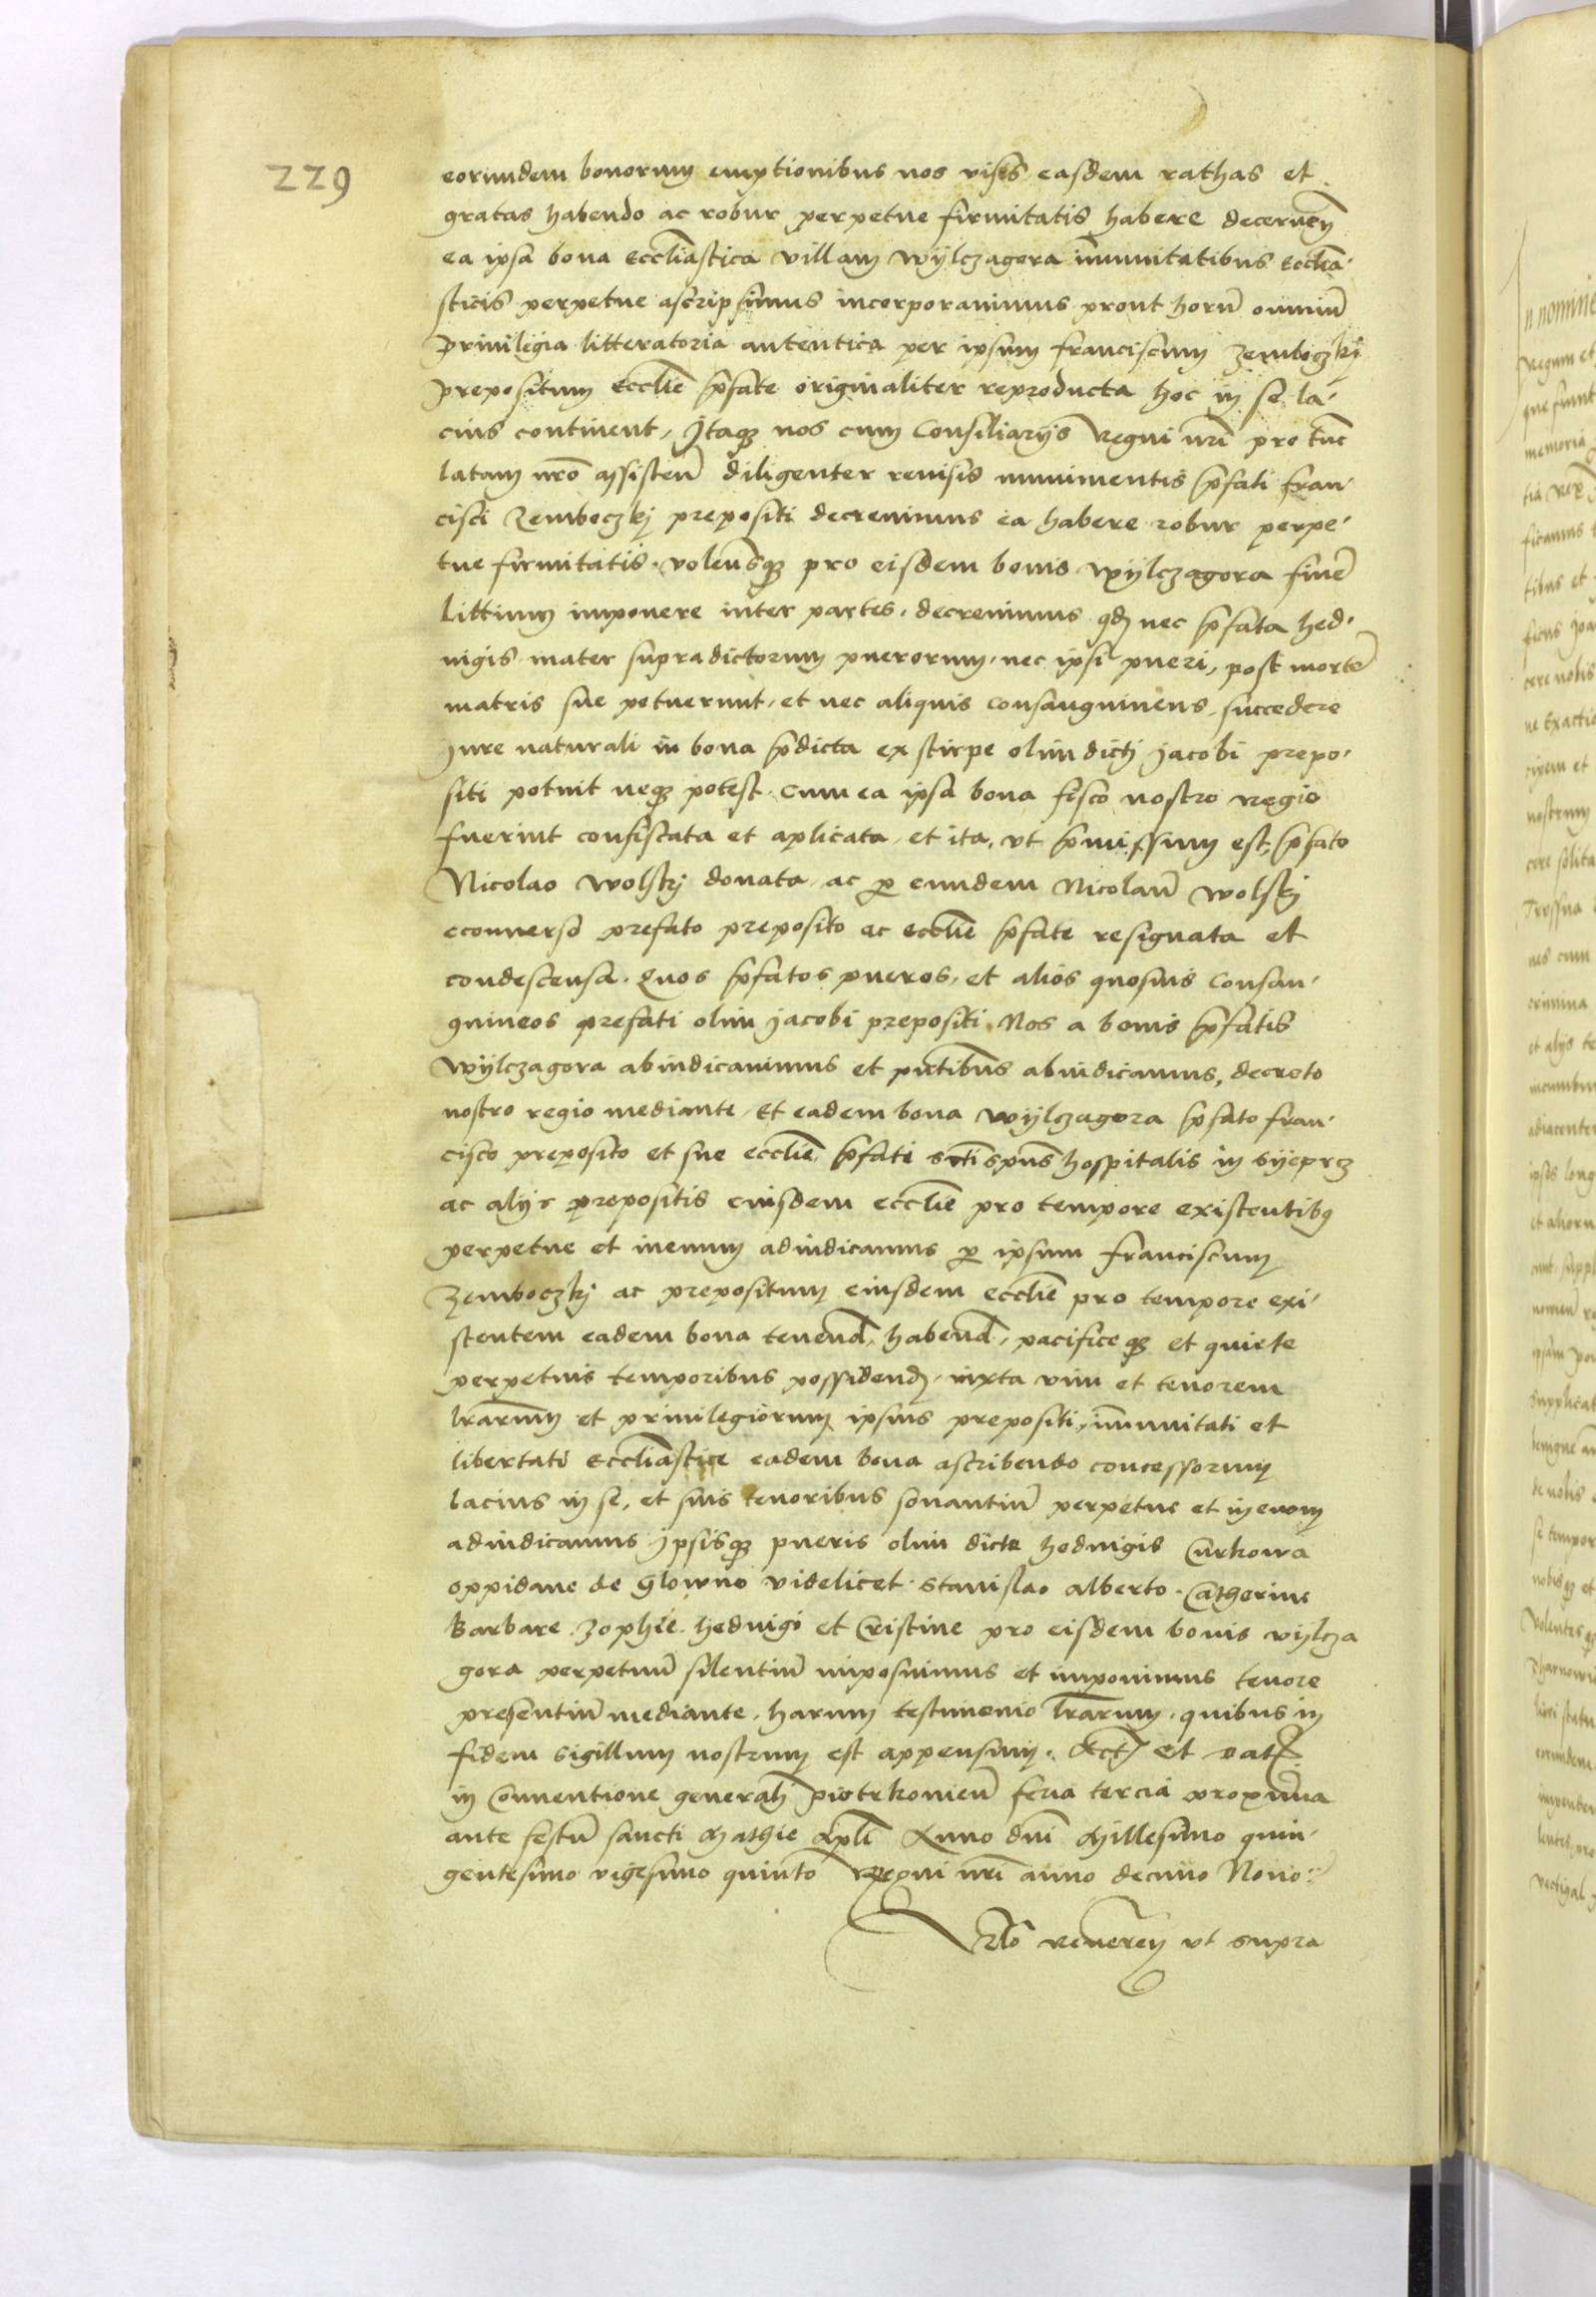 229
eorundem bonorum emptionibus nos visis easdem rathas et
gratas habendo ac robur perpetue firmitatis habere decernen̄
ea ipsa bona eccl̄iastica villam Wylczagora im̄unitatibus eccl̄ia-
sticis perpetue ascripsimus incorporavimus prout horu͂ omniu͂
Privilegia litteratoria autentica per ipsum franciscum Zemboczkÿ
prepositum eccl̄ie p̄fate originaliter reproducta hoc in se la-
cius continent, Itaqꝫ nos cum Consiliarÿs Regni nr̄i pro tūc
latam nr̄o assisten̄ diligenter revisis munimentis p̄fati fran-
cisci Zemboczkj prepositi decrevimus ea habere robur perpe-
tue firmitatis. volen̄sqꝫ pro eisdem bonis Wylczagora fine͂
littium imponere inter partes. decrevimus qd̄ nec p̄fata hed-
vigis mater supradictorum puerorum, nec ipsi pueri, post morte͂
matris sue potuerunt, et nec aliquis consanguineus succedere
Jure naturali in bona p̄dicta ex stirpe olim dictj Jacobi prepo-
siti potuit neqꝫ potest. cum ea ipsa bona fisco nostro Regio
fuerint confiscata et aplicata, et ita, vt p̄missum est, p̄fato
Nicolao Wolskj donata, ac ꝑ eundem Nicolau͂ Wolskj
econverso prefato preposito ac eccl̄ie p̄fate resignata et
condescensa. Quos p̄fatos pueros, et alios quosvis consan-
guineos prefati olim Jacobi prepositi. Nos a bonis p̄fatis
Wylczagora abiudicavimus et pn̄tibus abiudicamus, decreto
nostro regio mediante, Et eadem bona Wylczagora p̄fato fran-
cisco preposito et sue eccl̄ie p̄fati sc̄ti sp̄us hospitalis in Syeprcz
ac alÿs prepositis eiusdem eccl̄ie pro tempore existentibꝫ
perpetue et inevum adiudicamus ꝑ ipsum franciscum
Zemboczkj ac prepositum eiusdem eccl̄ie pro tempore exi-
stentem eadem bona tenend̄, habend̄, pacifice qꝫ et quiete
perpetuis temporibus possidend̄, iuxta vim et tenorem
lr̄arum et privilegiorum ipsius prepositi, im̄unitati et
libertati eccl̄iastice eadem bona ascribendo concessorum
lacius in se, et suis tenoribus sonantiu͂ perpetue et in evom
adiudicamus ipsisqꝫ pueris olim dicte hedvigis Curkowa
oppidane de Glowno videlicet. Stanislao alberto. Catherine
Barbare. Zophie. hedvigi et Cristine pro eisdem bonis vylcza
gora perpetuu͂ silentiu͂ imposuimus et imponimus tenore
presentiu͂ mediante. harum testimonio lr̄arum, quibus in
fidem sigillum nostrum est appensum. Act̄ et dat̄
in Conventione generalj Piotrkovien̄ feria tercia proxima
ante festu͂ sancti Mathie Apl̄i Anno dn̄i Millesimo quin-
gentesimo vigesimo quinto Regni nr̄i anno decimo Nono
Rlō venereñ vt supra